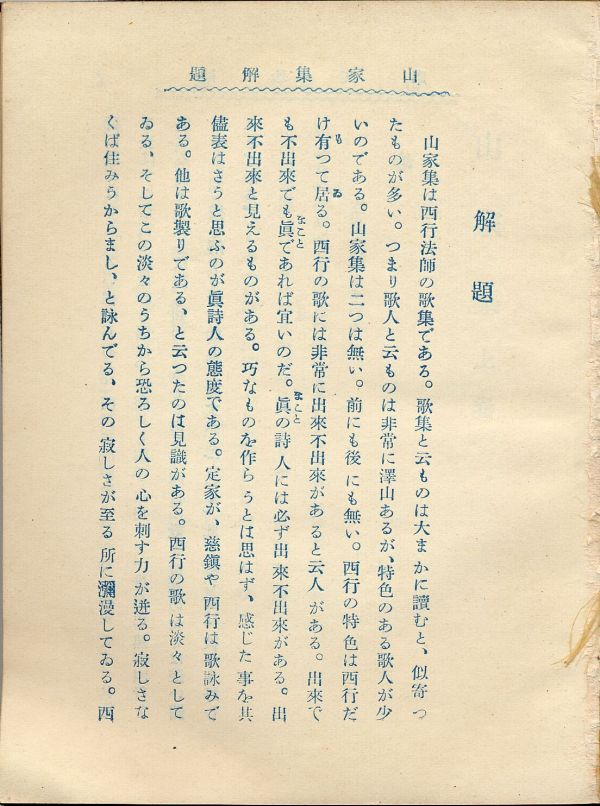 山家集解題
解題
山家集は西行法師の歌集である。歌集と云ものは大まかに讀むと、似寄つ
たものが多い。つまり歌人と云ものは非常に澤山あるが、特色のある歌人が少
いのである。山家集は二つは無い。前にも後にも無い。西行の特色は西行だ
け有つて居る。西行の歌には非常に出來不出來があると云人がある。出來で
も不出來でも眞であれば宜いのだ。眞の詩人には必ず出來不出來がある。出
來不出來と見えるものがある。巧なものを作らうとは思はず、感じた事を其
儘表はさうと思ふのが眞詩人の態度である。定家が、慈鎭や西行は歌詠みで
ある。他は歌製りである、と云つたのは見識がある。西行の歌は淡々として
ゐる、そしてこの淡々のうちから恐ろしく人の心を刺す力が迸る。寂しさな
くば住みうからまし、と詠んでる、その寂しさが至る所に瀰漫してゐる。西